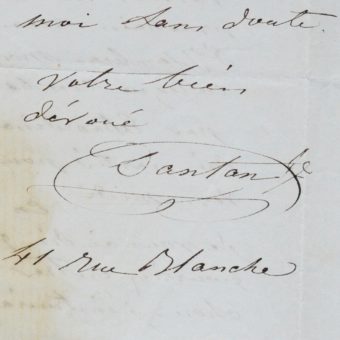 moi sans doute.
Votre bien
dévoué
Santan
41 rue Blanche